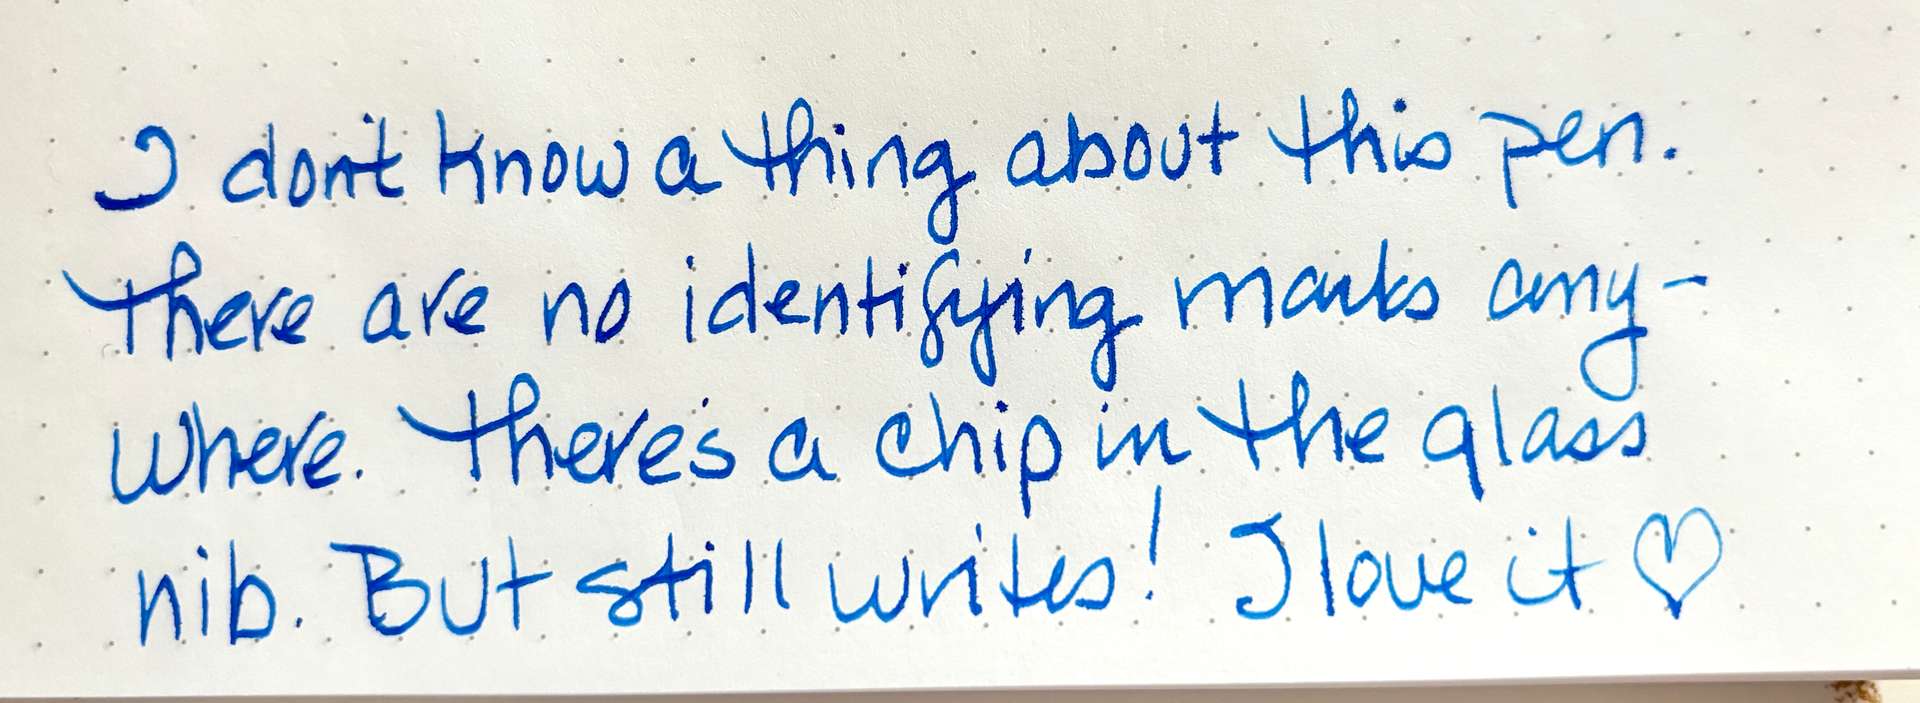 I don't know a thing about this pen.
There are no identifying marks any-
where. There's a chip in the glass
nib. But still writes! I love it ♡